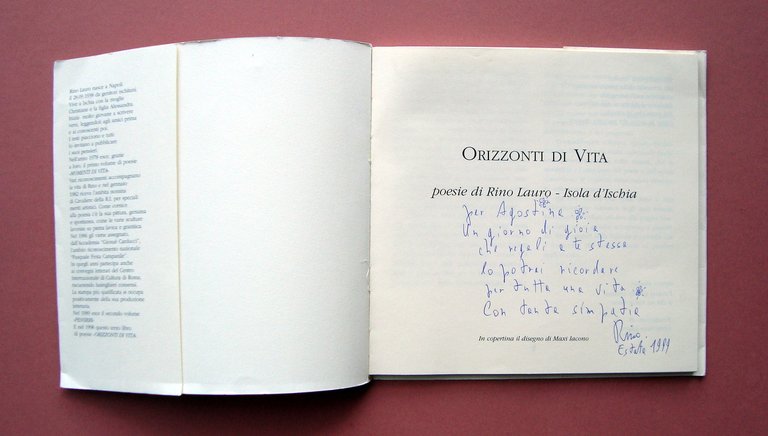 Rino Lauro nasce a Napoli
il 29.09.1939 da genitori ischitani.
Vive a Ischia con la moglie
Christiane e la figlia Alessandra.
Inizia molto giovane a scrivere
versi, leggendoli agli amici prima
e ai conoscenti poi.
I testi piacciono e tutti
lo invitano a pubblicare
i suoi pensieri.
Nell'anno 1978 esce, grazie
a loro, il primo volume di poesie
«MOMENTI DI VITA».
Vari riconoscimenti accompagnano
la vita di Rino e nel gennaio
1982 riceve l'ambita nomina
di Cavaliere della R.I. per speciali
meriti artistici. Come cornice
alla poesia c'è la sua pittura, genuina
e spontanea, come le varie sculture
lavorate su pietra lavica e granitica.
Nel 1986 gli viene assegnato,
dall'Accademia "Giosuè Carducci",
l'ambito riconoscimento nazionale
"Pasquale Festa Campanile".
In quegli anni partecipa anche
ai convegni letterari del Centro
Internazionale di Cultura di Roma,
riscuotendo lusinghieri consensi.
La stampa più qualificata si occupa
positivamente della sua produzione
letteraria.
Nel 1989 esce il secondo volume
«PENSIERI».
E nel 1996 questo terzo libro
di poesie «ORIZZONTI DI VITA».
ORIZZONTI DI VITA
poesie di Rino Lauro - Isola d'Ischia
per Agostina
Un giorno di gioia
che regali a te stessa
lo potrai ricordare
per tutta una vita
Con tanta simpatia
Rino
Estate 1999
In copertina il disegno di Maxi Iacono